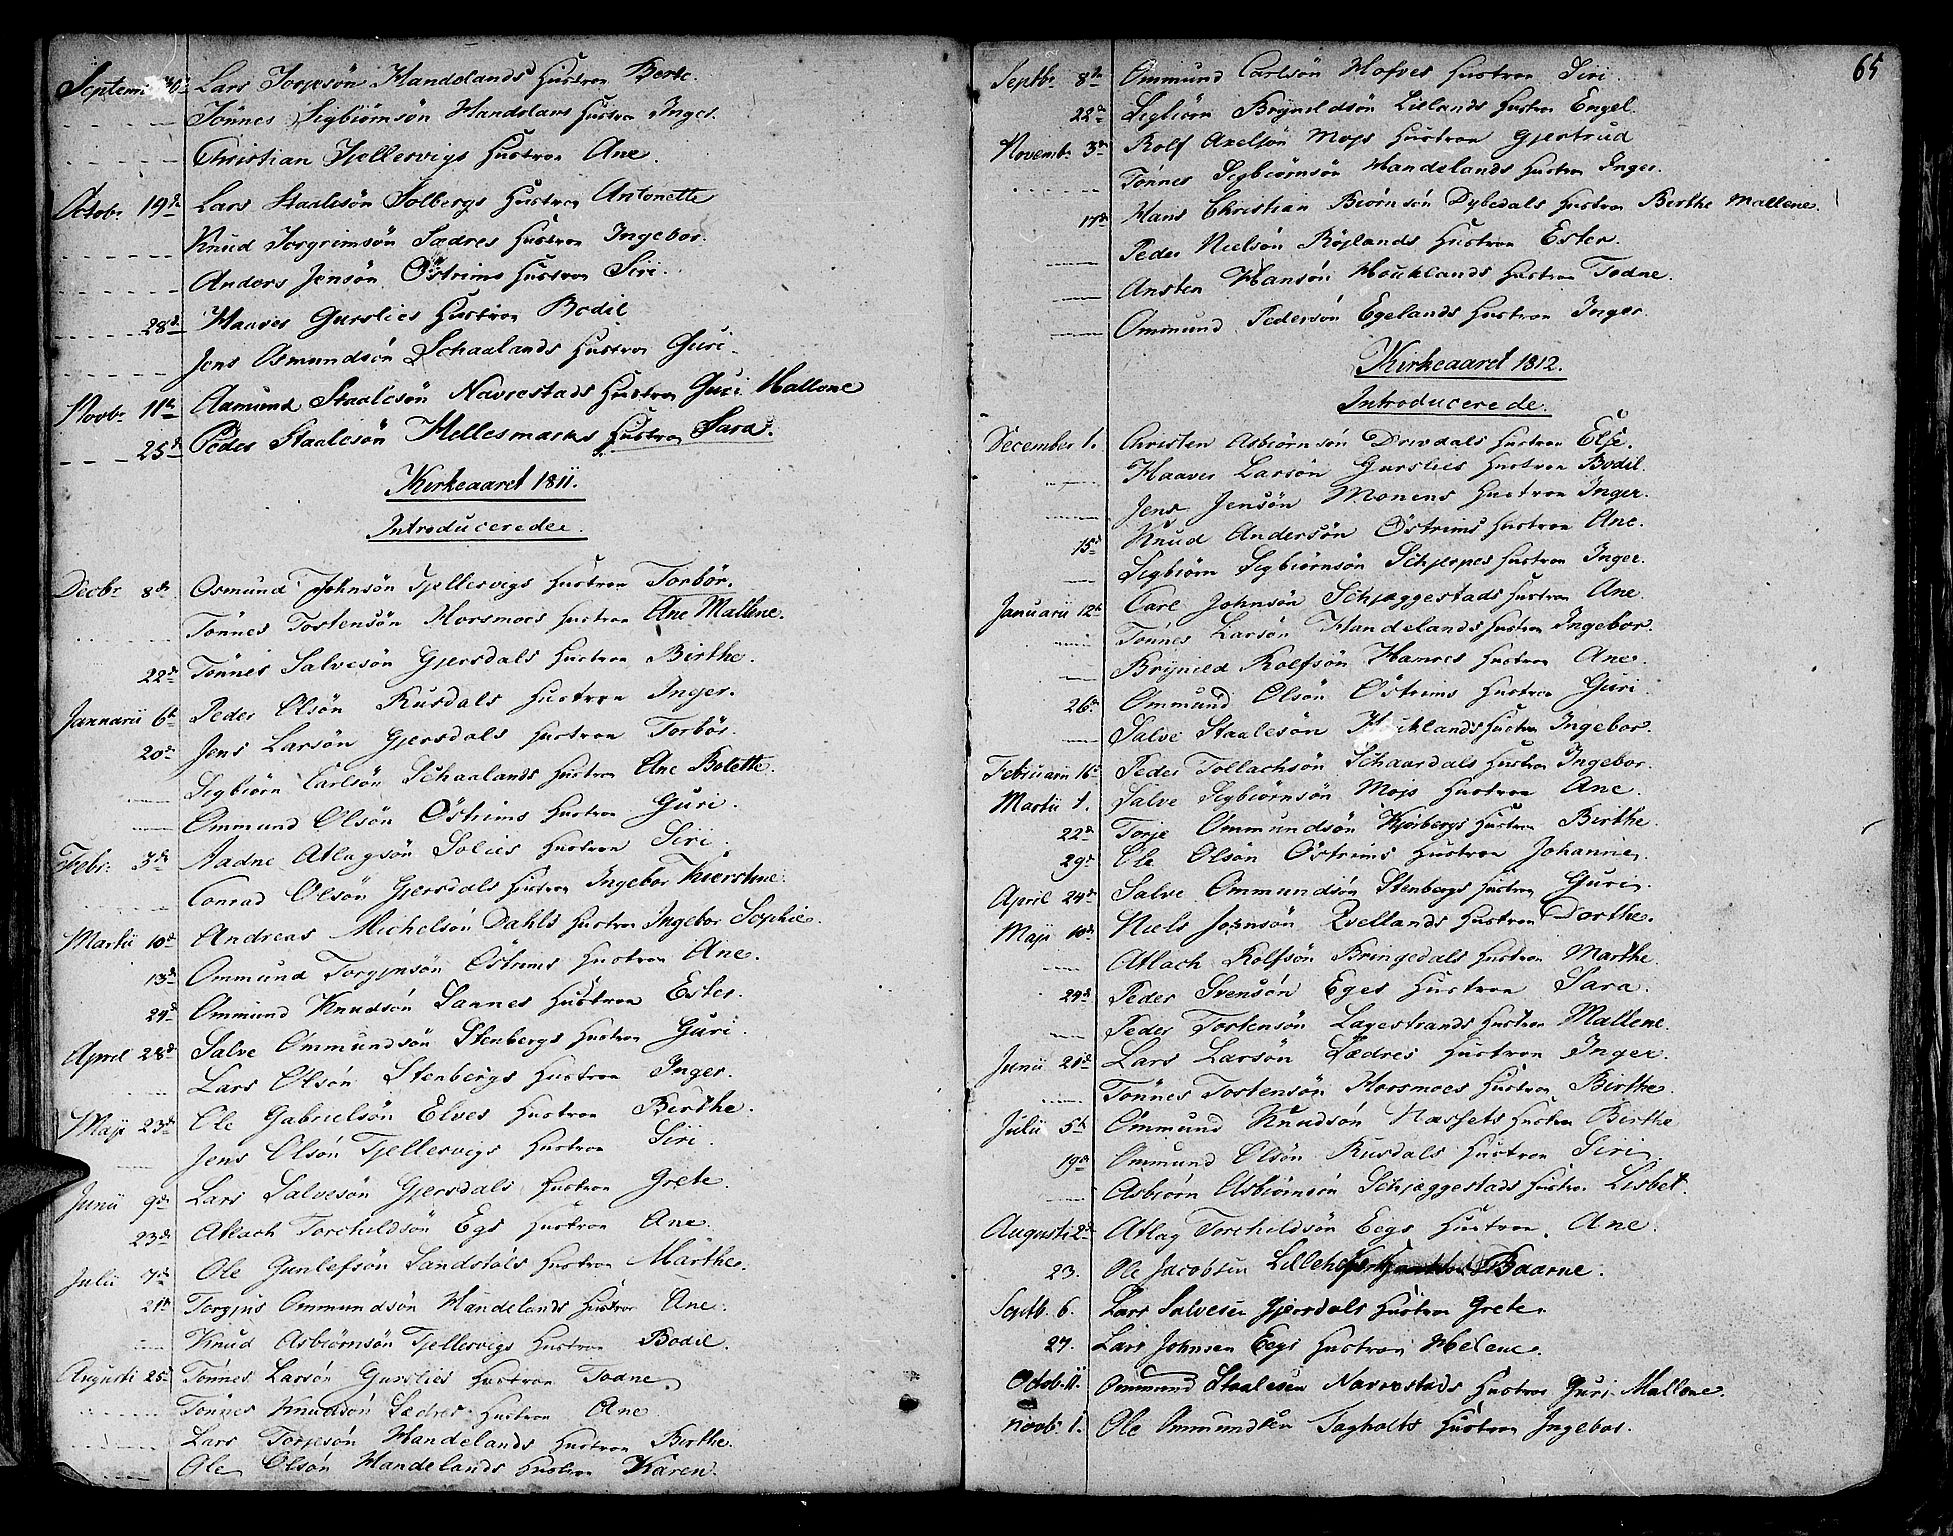 Septem 30 Lars Torjesön Handelands Hustroe Berte.
Tönnes Sigbiörnsön Handelans Hustroe Inger.
Christian Tjellesvigs Hustroe Ane.
Octobr 19de Lars Staalesön Solbergs Hustroe Antonette
Knud Torgrimsön Sædres Hustroe Ingebor.
Anders Jensön Östrims Hustroe Siri.
28de Haaver Gurslies Hustroe Bodil
Jens Osmundsön Schaalands Hustroe Guri.
Novbr 11te Aamund Staalesön Navrestads Hustroe Guri Mallene
25de Peder Staalesön Hellesmarks Hustroe Sara.
Kirkeaaret 1811.
Introducerede.
Decbr 8de Osmund Johnsön Tjellesvigs Hustroe Torbör.
Tönnes Tostensön Horsmoes Hustroe Ane Mallene.
22de Tönnes Salvesön Gjersdals Hustroe Birthe.
Januarii 6te Peder Olsön Rusdals Hustroe Inger.
20de Jens Larsön Gjersdals Hustroe Torbör.
Sigbiörn Carlsön Schaalands Hustroe Ane Bolette.
Ommund Olsön Östrims Hustroe Guri.
Febr. 3de Aadne Atlagsön Solies Hustroe Siri.
Conrad Olsön Gjersdals Hustroe Ingebor Kierstine.
Martii 10de Andreas Michelsön Dahls Hustroe Ingebor Sophie.
13de Ommund Torgjusön Östrims Hustroe Ane.
24de Ommund Knudsön Sannes Hustroe Ester.
April 28de Salve Ommundsön Stenbergs Hustroe Guri.
Lars Olsön Stenbergs Hustroe Inger.
Maji 23de Ole Gabrielsön Elves Hustroe Berthe.
Jens Olsön Tjellesvigs Hustroe Siri.
Junii 9de Lars Salvesön Gjersdals Hustroe Grete.
23de Atlach Torchildsön Egs Hustroe Ane.
Julii 7de Ole Gunlefsön Sandstöls Hustroe Marthe.
21de Torgjus Ommundsön Handelands Hustroe Ane.
Knud Asbiörnsön Tjellesvigs Hustroe Bodil.
Augusti 25de Tönnes Larsön Gurslies Hustroe Todne.
Tönnes Knudsön Sædres Hustroe Ane.
Lars Torjesön Handelands Hustroe Birthe.
Ole Olsön Handelands Hustroe Karen.
65
Septbr 8de Ommund Carlsön Hofves Hustroe Siri.
22de Sigbiörn Brynildsön Lillands Hustroe Engel.
Novembr 3de Rolf Axelsön Mojs Hustroe Gjertrud
Tönnes Sigbiörnsön Handelands Hustroe Inger.
17de Hans Christian Biörnsön Dybedals Hustroe Berthe Mallene.
Peder Nielsön Röjlands Hustroe Ester.
Ansten Hansön Houklands Hustroe Todne.
Ommund Pedersön Egelands Hustroe Inger.
Kirkeaaret 1812.
Introducerede.
December 1. Christen Asbiörnsön Drivdals Hustroe Else.
Haaver Larsön Gurslies Hustroe Bodil.
Jens Jensön Monens Hustroe Inger.
15de Knud Andersön Östrims Hustroe Ane.
Sigbiörn Sigbiörnsön Schjerpes Hustroe Inger.
Januarii 12te Carl Johnsön Schjæggestads Hustroe Ane.
Tönnes Larsön Handelands Hustroe Ingebor.
Brynild Rolfsön Hamres Hustroe Ane.
26de Ommund Olsön Östrims Hustroe Guri.
Salve Staalesön Houklands Hustroe Ingebor.
Februarii 16de Peder Tollachsön Schaardals Hustroe Ingebor.
Martii 1. Salve Sigbiörnsön Mojs Hustroe Ane.
22de Torje Ommundsön Kjörbergs Hustroe Birthe.
29de Ole Olsön Östrims Hustroe Johanne.
April 24de Salve Ommundsön Stenbergs Hustroe Guri.
Maji 10de Niels Johnsön Qvellands Hustroe Dorthe.
Atlach Rolfsön Bringedals Hustroe Marthe.
24de Peder Svensön Eges Hustroe Sara.
Peder Tostensön Lagestrands Hustroe Mallene.
Junii 21de Lars Larsön Sædres Hustroe Inger.
Tönnes Tostensön Horsmoes Hustroe Birthe.
Julii 5te Ommund Knudsön Næssets Hustroe Birthe
19de Ommund Olsön Rusdals Hustroe Siri.
Asbiörn Asbiörnsön Schjæggestads Hustroe Lisbet.
Augusti 2de Atlag Torchildsön Eegs Hustroe Ane.
23. Ole Jacobsen Baarne.
Septb. 6. Lars Salvesen Gjersdals Hustroe Grete.
27. Lars Johnsen Eegs Hustroe Helene.
Octob. 11. Ommund Staalesen Navrestads Hustroe Guri Mallene.
Novb. 1. Ole Ommundsen Fagholts Hustroe Ingebor.